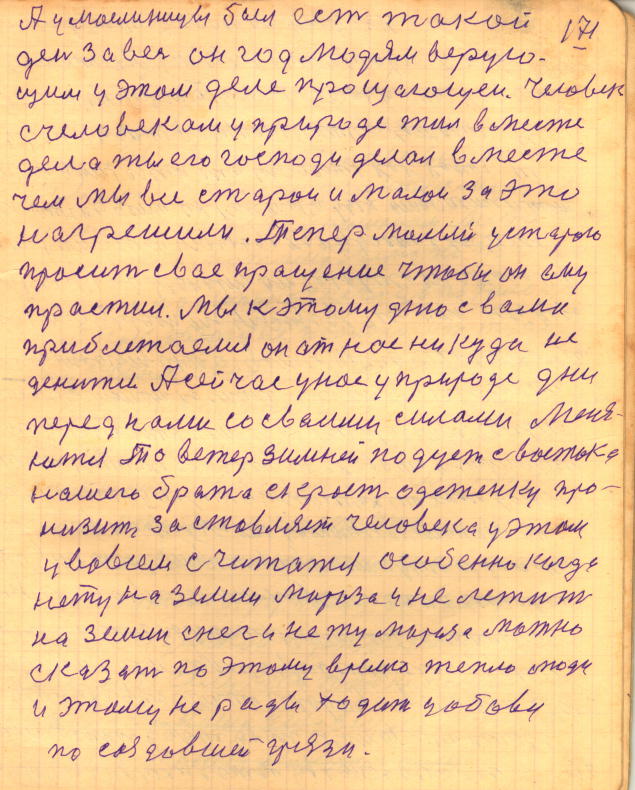 А у масленицы был ест такой 171
ден за век он год людям верую-
щим у этом деле прощающеи. Человек
с человекам у природе жил вместе
дела ты его господи делал вместе
чем мы все старои и малои за это
нагрешили. Тепер малый у старого
просит свае пращение чтобы он ему
прастил. Мы к этому дню с вами
приближаемся он ат нас никуда не
денится А сейчас у нас у природе дни
перед нами со своими силами меня-
ются То ветер зимней подует с востока
нашего брата скрозт одеженку про-
низит заставляет человека у этом
у вовсем считатя особенно когда
нету на земли мароза и не летит
на земли снег и нету мароза можно
сказат по этому время тепло люди
и этому не рады ходит у обови
по создавшей грязи.